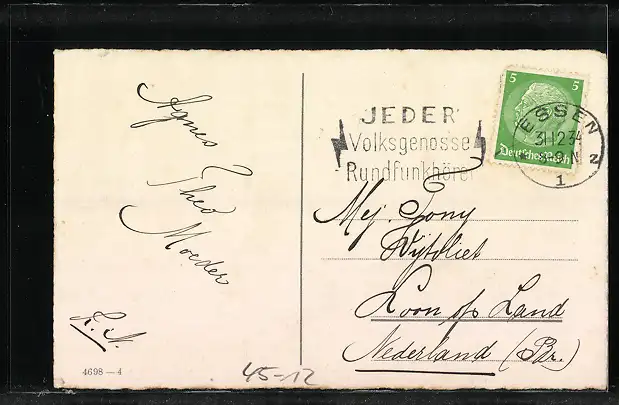 Agnes
Theo
Moeder
4698 — 4
45-12
JEDER
Volksgenosse
Rundfunkhörer
5 5
Deutsches Reich
ESSEN
31.12.34
1
Mej. Tony
Uytvliet
Loon op Land
Nederland (Br.)